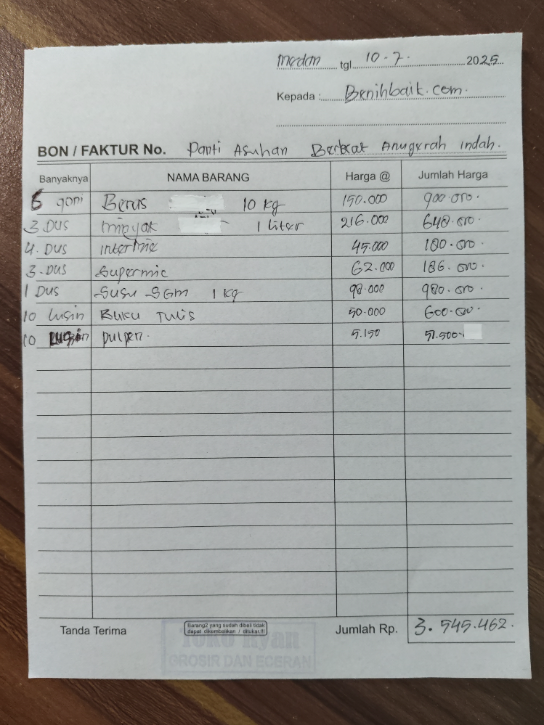 medan tgl 10-7. 2025
Kepada : Benihbaik.com.
BON / FAKTUR No. Panti Asuhan Berkat Anugerah Indah.
Banyaknya NAMA BARANG Harga @ Jumlah Harga
6 goni Beras 10 kg 150.000 900.000.
3 DUS minyak 1 liter 216.000 648.000.
4. DUS intermie 45.000 180.000.
3. DUS supermie 62.000 186.000.
1 DUS susu SGM 1 kg 98.000 980.000.
10 lusin Buku Tulis 50.000 600.000.
10 lusin pulpen. 5.150 51.500.
Tanda Terima
Barang2 yang sudah dibeli tidak
dapat dikembalikan / ditukar !!
Jumlah Rp. 3.545.462.
Toko Ryan
GROSIR DAN ECERAN